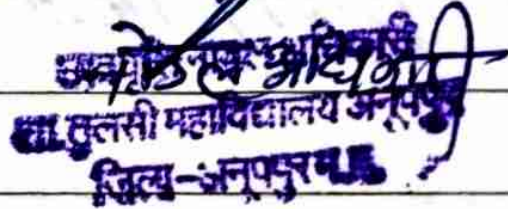 नोडल अधिकारी
शा. तुलसी महाविद्यालय अनूपपुर
जिला-अनूपपुर म.प्र.